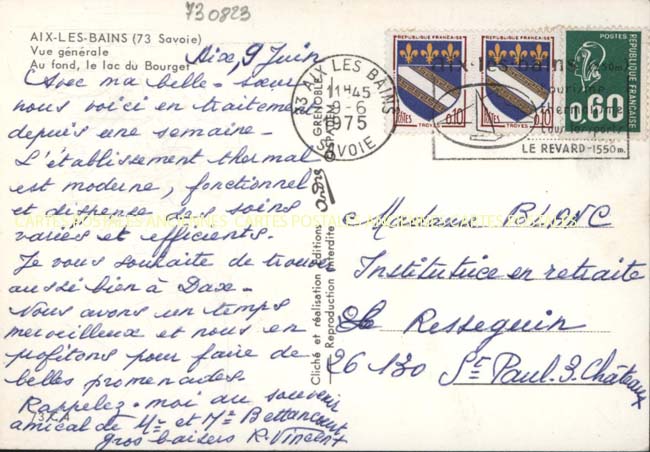 73 0823
AIX-LES-BAINS (73 Savoie)
Vue générale
Au fond, le lac du Bourget
Aix, 9 Juin
Avec ma belle-sœur
nous voici en traitement
depuis une semaine-
L'établissement thermal
est moderne, fonctionnel
et dispense des soins
variés et efficients.
Je vous souhaite de trouver
aussi bien à Dax-
Nous avons un temps
merveilleux et nous en
profitons pour faire de
belles promenades.
Rappelez-moi au souvenir
amical de Me et Me Bettancourt
gros baisers R. Vincent
73 AIX LES BAINS
11H45
9-6
1975
SAVOIE
REPUBLIQUE FRANCAISE
POSTES
TROYES
0,10
REPUBLIQUE FRANCAISE
POSTES
TROYES
0,10
POSTES
REPUBLIQUE FRANCAISE
0,60
aix-les-bains
tourisme
tous les sports
LE REVARD-1550m.
GRENOBLE
SPADEM
Cliché et réalisation Editions
Reproduction interdite
CARTES POSTALES ANCIENNES CARTES POSTALES ANCIENNES CARTES POSTALES ANCIENNES
Madame BLANC
Institutrice en retraite
Le Resseguin
26130 St Paul 3 Châteaux